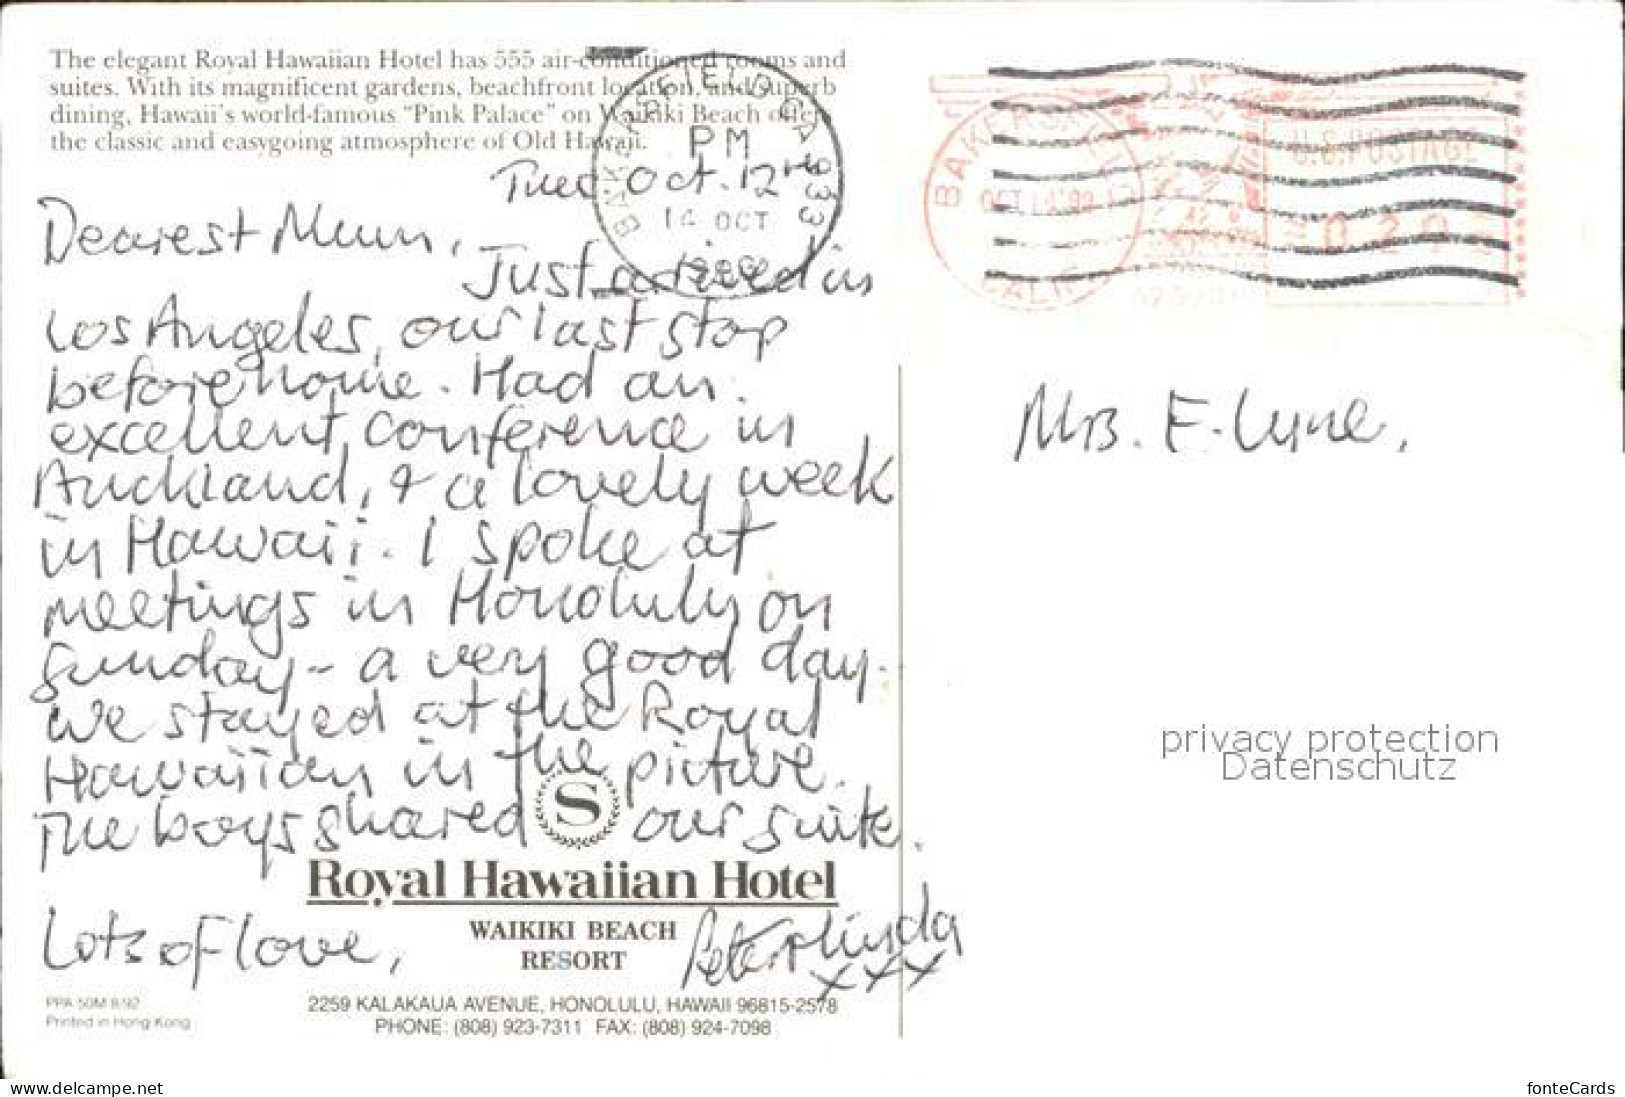 The elegant Royal Hawaiian Hotel has 555 air-conditioned rooms and
suites. With its magnificent gardens, beachfront location, and superb
dining, Hawaii's world-famous "Pink Palace" on Waikiki Beach offers
the classic and easygoing atmosphere of Old Hawaii.
Tues Oct. 12th
Dearest Mum,
Just arrived in
Los Angeles, our last stop
before home. Had an
excellent conference in
Auckland, & a lovely week
in Hawaii. I spoke at
meetings in Honolulu on
Sunday - a very good day.
We stayed at the Royal
Hawaiian in the picture.
The boys shared our suite.
S
Royal Hawaiian Hotel
WAIKIKI BEACH
RESORT
Lots of love,
Peter & Linda
xxx
PPA 50M 8/92
Printed in Hong Kong
2259 KALAKAUA AVENUE, HONOLULU, HAWAII 96815-2578
PHONE: (808) 923-7311 FAX: (808) 924-7098
BAKERSFIELD CA 933
PM
14 OCT
U.S. POSTAGE
CALIF
Mrs. F. Lyne,
privacy protection
Datenschutz
www.delcampe.net
fonteCards